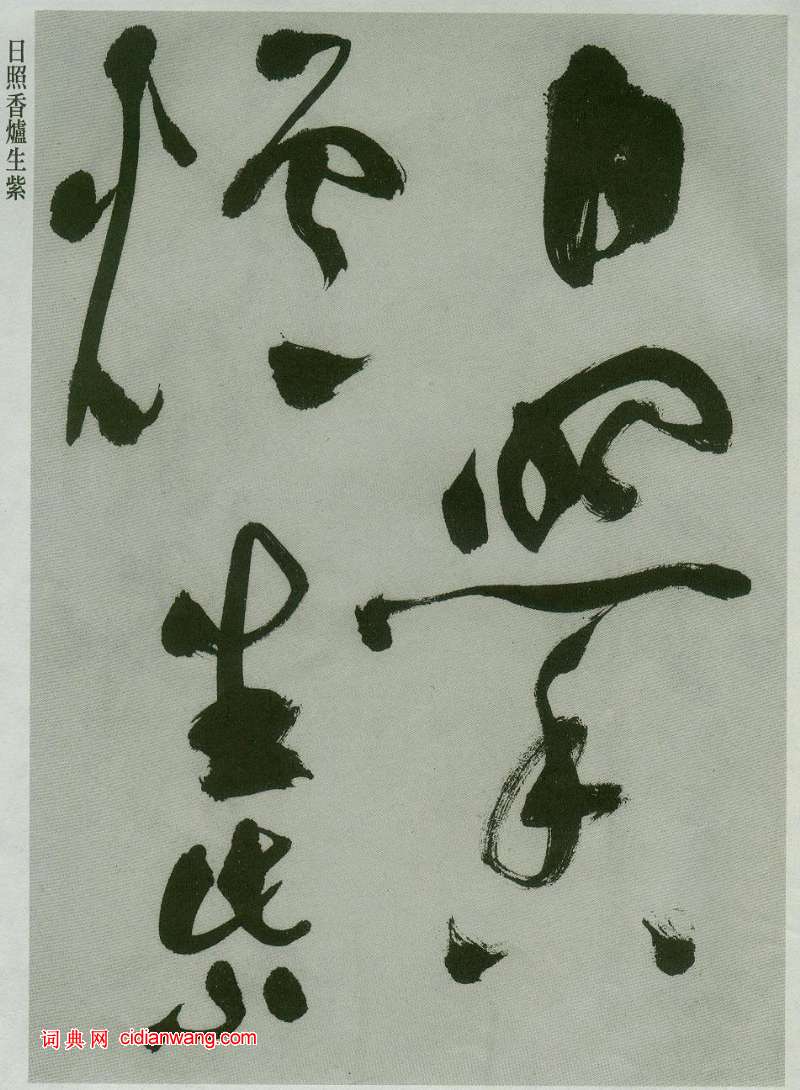 日照香
爐生紫
日照香爐生紫
词典网 cidianwang.com